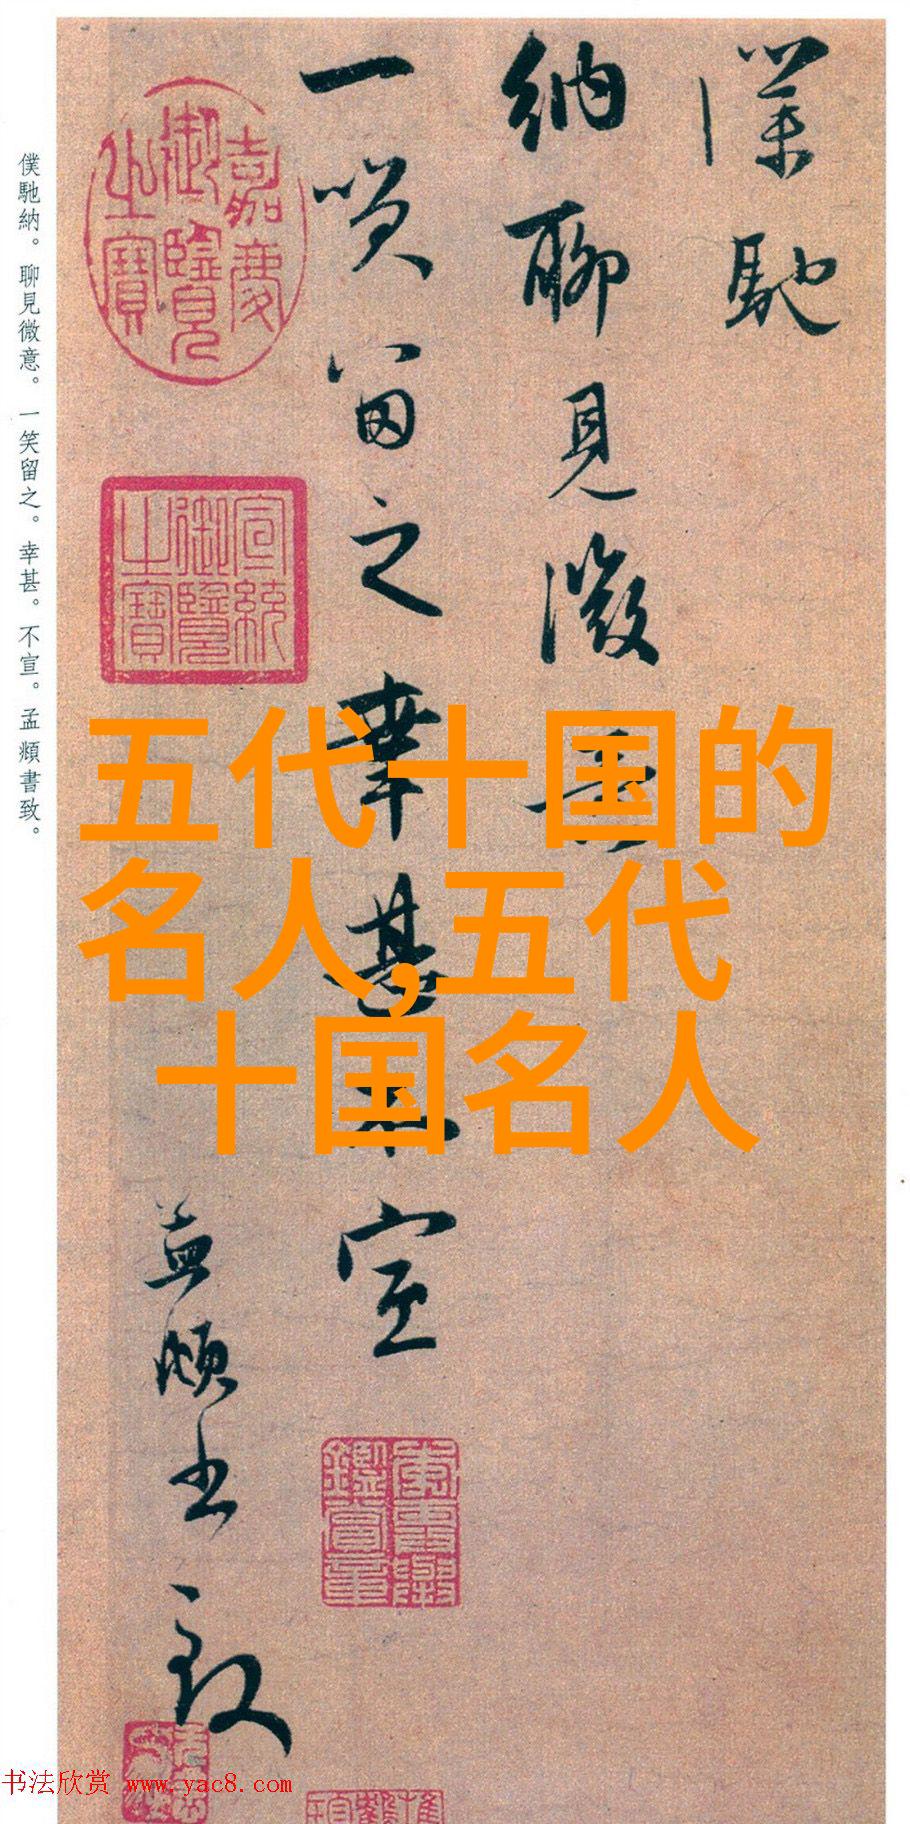 僕馳
納聊見微意
一笑留之幸甚不宣
孟頫书致
嘉慶御覽之寶
宣統御覽之寶
僕馳納。聊見微意。一笑留之。幸甚。不宣。孟頫書致。
五代十国的
名人,五代
十国名人
书法欣赏 www.yac8.com